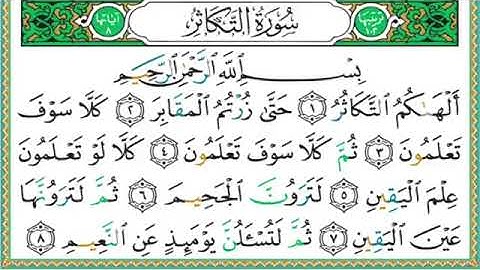 ترتيبها ١٠٢ سُورَةُ التَّكَاثُرِ آياتها ٨
بِسْمِ اللَّهِ الرَّحْمَٰنِ الرَّحِيمِ
أَلْهَىٰكُمُ التَّكَاثُرُ ١ حَتَّىٰ زُرْتُمُ الْمَقَابِرَ ٢ كَلَّا سَوْفَ
تَعْلَمُونَ ٣ ثُمَّ كَلَّا سَوْفَ تَعْلَمُونَ ٤ كَلَّا لَوْ تَعْلَمُونَ
عِلْمَ الْيَقِينِ ٥ لَتَرَوُنَّ الْجَحِيمَ ٦ ثُمَّ لَتَرَوُنَّهَا
عَيْنَ الْيَقِينِ ٧ ثُمَّ لَتُسْـَٔلُنَّ يَوْمَئِذٍ عَنِ النَّعِيمِ ٨